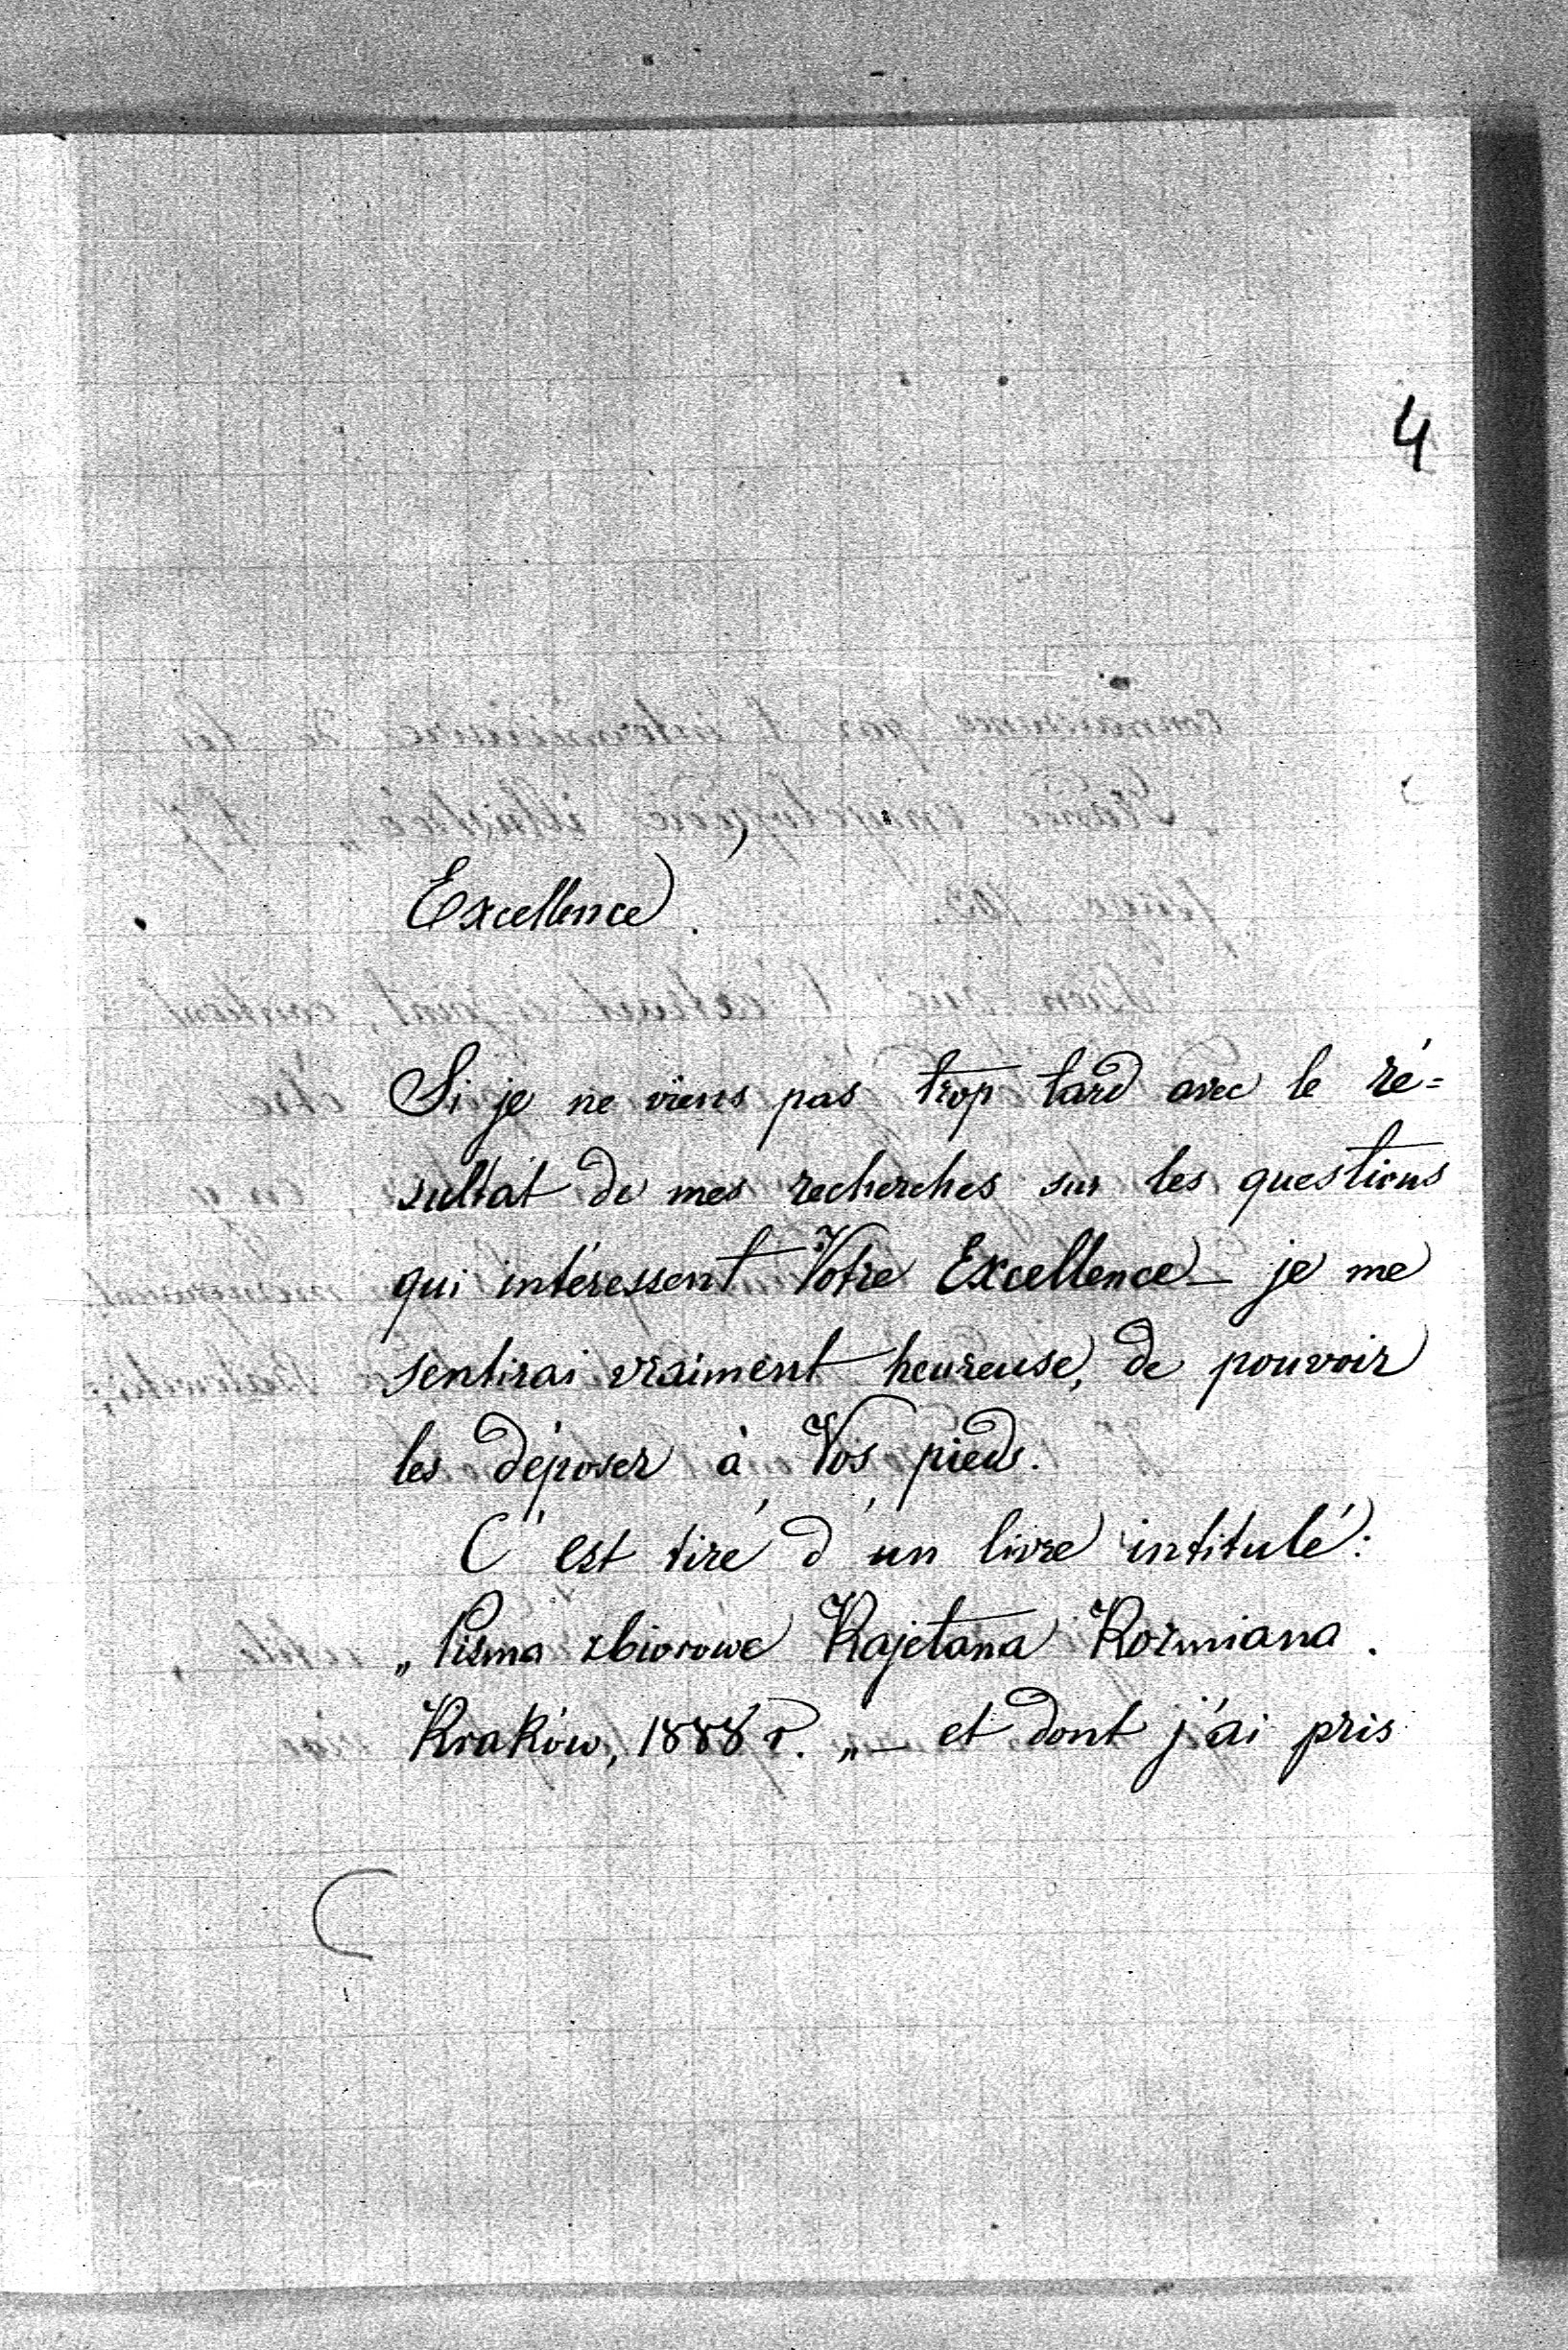 4
Excellence.
Si je ne viens pas trop tard avec le ré=
sultat de mes recherches sur les questions
qui intéressent Votre Excellence – je me
sentirai vraiment heureuse, de pouvoir
les déposer à Vos pieds.
C'est tiré d'un livre intitulé:
„Pisma zbiorowe Kajetana Kozmiana.
Kraków, 1888 r. „ – et dont j'ai pris